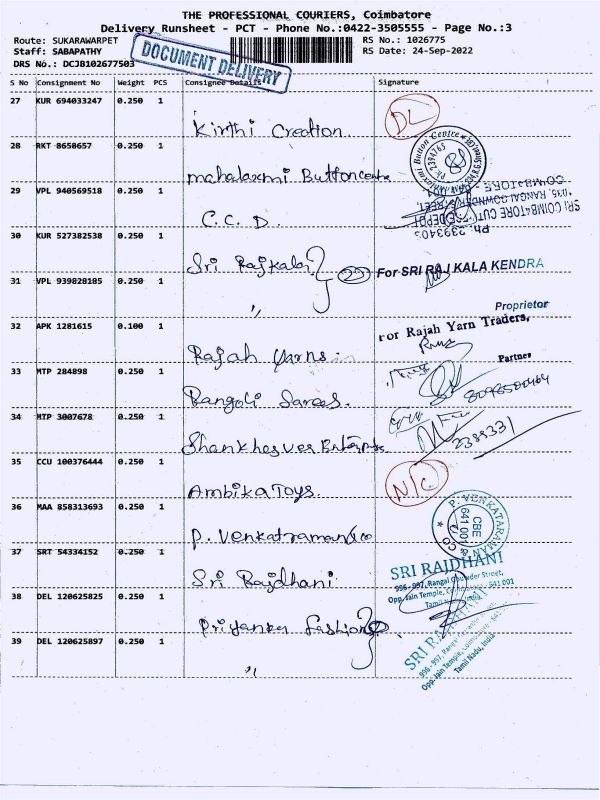 THE PROFESSIONAL COURIERS, Coimbatore
Delivery Runsheet - PCT - Phone No.:0422-3505555 - Page No.:3
Route: SUKARAWARPET
RS No.: 1026775
Staff: SABAPATHY
RS Date: 24-Sep-2022
DRS No.: DCJB102677503
DOCUMENT DELIVERY
S No Consignment No Weight PCS Consignee Details Signature
27 KUR 694033247 0.250 1
Kirthi Creation
DL
28 RKT 8658657 0.250 1
mahalaxmi Button centre
Button Centre
29 VPL 940569518 0.250 1
C.C.D.
SRI COIMBATORE CUT PIECE DEPOT
Ph: 2393403
30 KUR 527382538 0.250 1
Sri Rajkala
For SRI RAJ KALA KENDRA
31 VPL 939828185 0.250 1
"
Proprietor
32 APK 1281615 0.100 1
For Rajah Yarn Traders,
Rajah Yarns
Partner
33 MTP 284898 0.250 1
Rangoli Sarees.
34 MTP 3007678 0.250 1
2388331
35 CCU 100376444 0.250 1
Ambika Toys.
N/C
36 MAA 858313693 0.250 1
P. Venkatraman &co
P. VENKATARAMAN & CO
CBE.
641 001
37 SRT 54334152 0.250 1
Sri Rajdhani
SRI RAJDHANI
996-997, Rangai Gowder Street,
Opp. Jain Temple, Coimbatore - 641 001
Tamil Nadu, India
38 DEL 120625825 0.250 1
Priyanka Fashion
39 DEL 120625897 0.250 1
"
SRI RAJDHANI
Opp. Jain Temple, Coimbatore - 641
Tamil Nadu, India